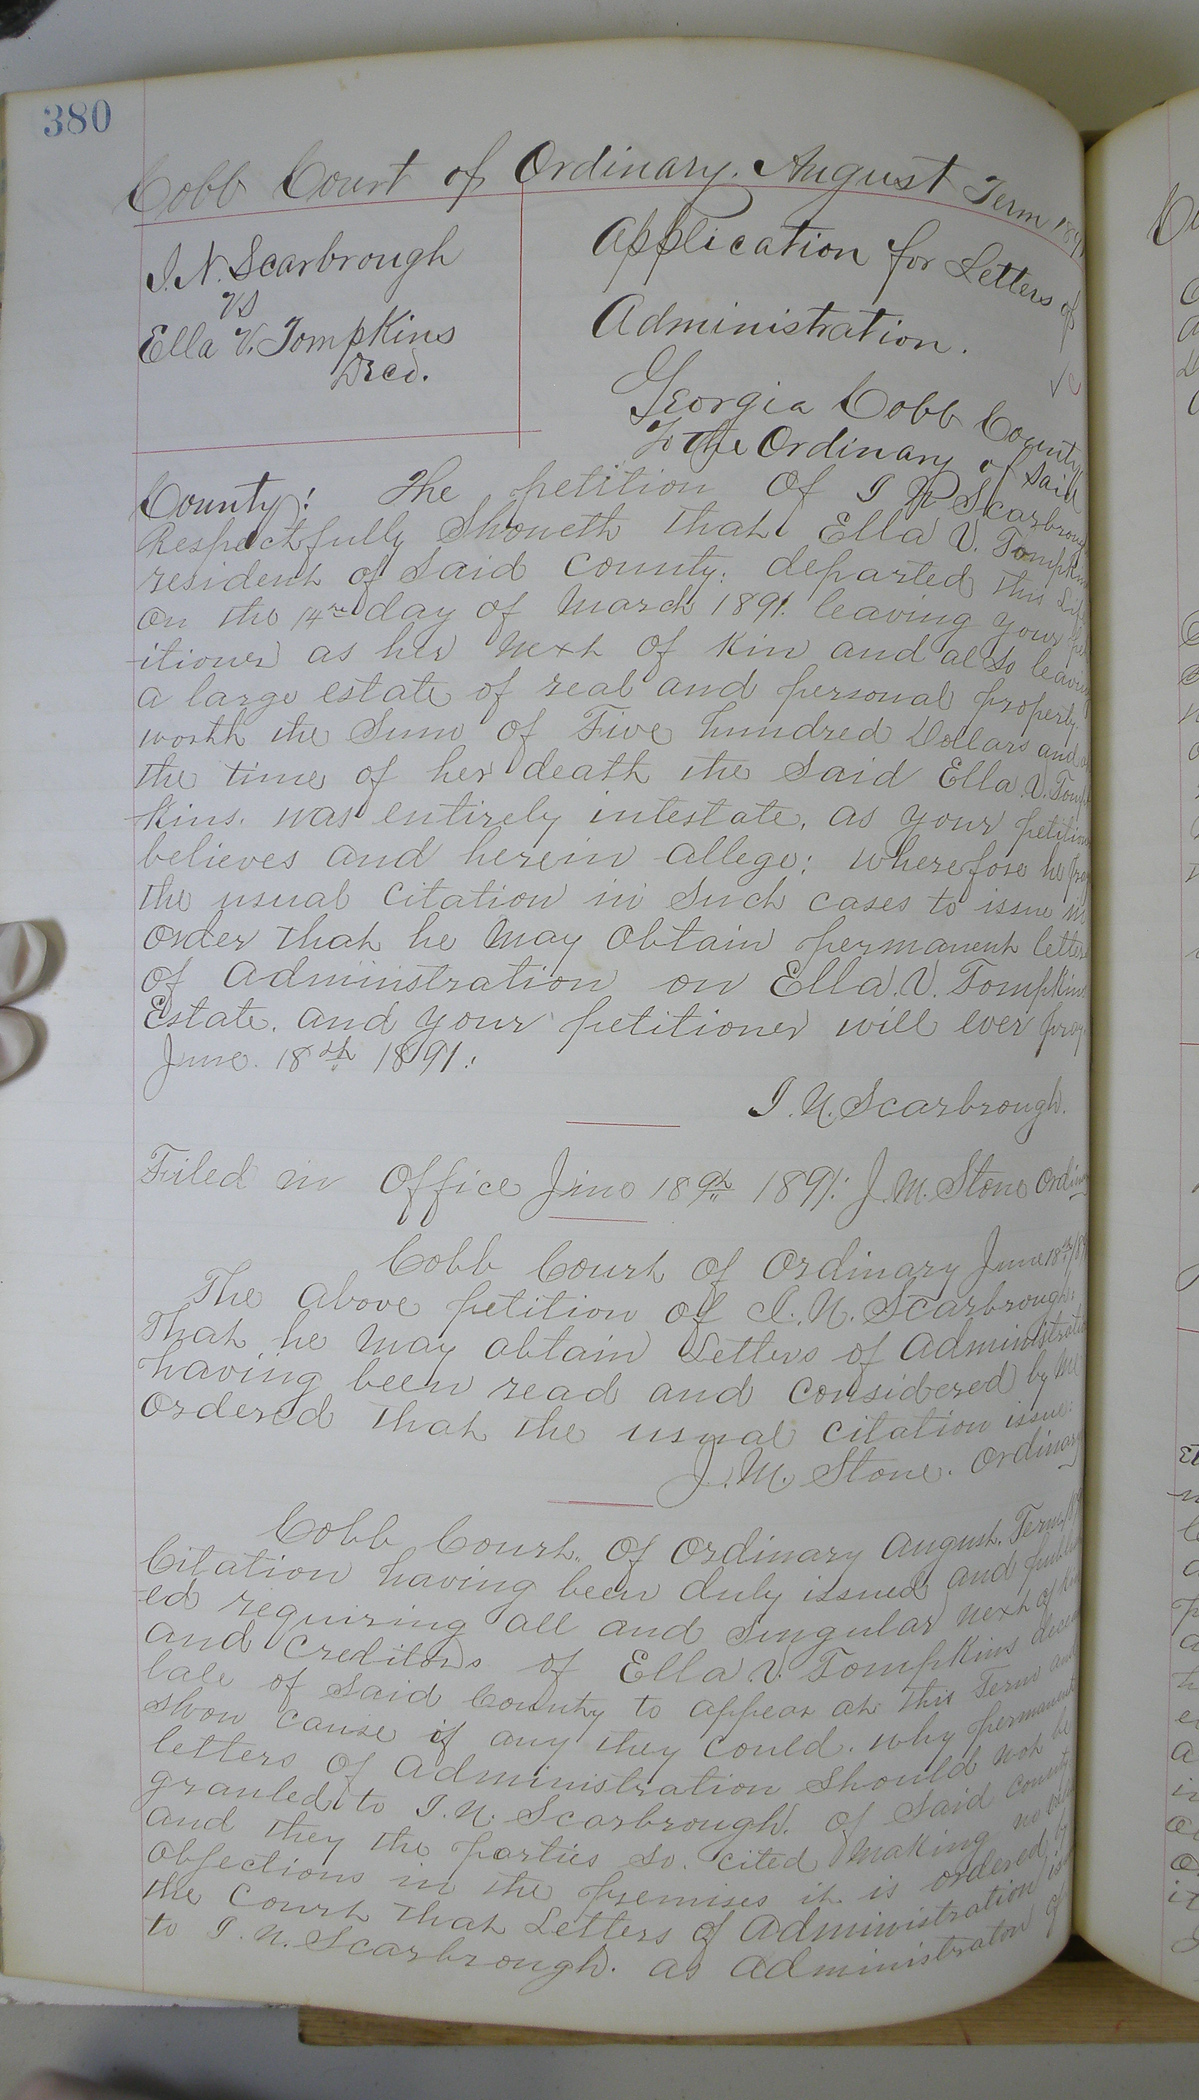 380
Cobb Court of Ordinary. August Term 1891
I. N. Scarbrough
vs
Ella V. Tompkins
Decd.
Application for Letters of
Administration.
Georgia Cobb County
To the Ordinary of Said
County: The petition of I N Scarbroug
Respectfully Shoueth that Ella V. Tompkin
resident of Said County: departed this Life
on the 14th day of March 1891. leaving your pet
itioner as her next of Kin and also leaving
a large estate of real and personal property
worth the Sum of Five hundred Dollars and at
the time of her death the Said Ella V. Tomp
kins. was entirely intestate, as your petition
believes and herein allege: wherefore he pray
the usual citation in Such cases to issue in
order that he may obtain permanent letters
of administration on Ella. V. Tompkins
Estate. and your petitioner will ever pray
June. 18th 1891:
I. N. Scarbrough.
Filed in Office June 18th 1891: J. M. Stone Ordin
Cobb Court of Ordinary June 18th 189
The above petition of I. N. Scarbrough:
That he may obtain Letters of Administratio
having been read and considered by me
Ordered that the usual citation issue:
J. M. Stone. Ordinary
Cobb Court. of Ordinary August. Term 189
Citation having been duly issued and publish
ed requiring all and Singular next of kin
and creditors of Ella V. Tompkins decea
late of said County to appear at this Term and
show cause if any they could. why permanent
letters of administration should not be
granted to I. N. Scarbrough. of Said County
and they the parties so. cited making no valid
objections in the premises it is ordered by
the Court that Letters of Administration iss
to I. N. Scarbrough. as Administrator of